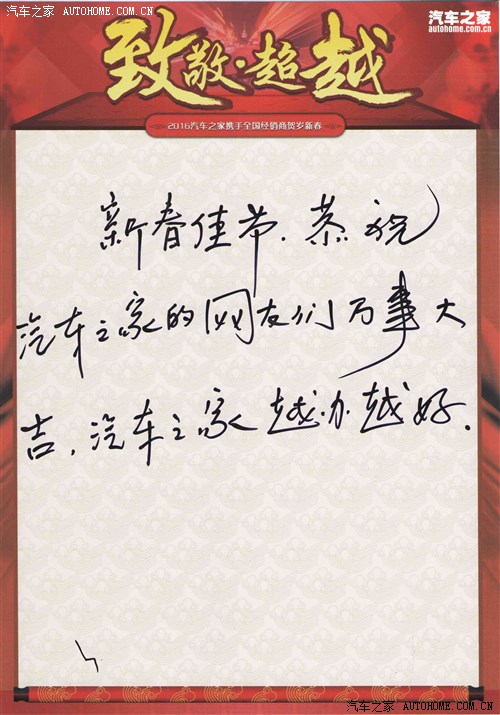 汽车之家 AUTOHOME.COM.CN
汽车之家
autohome.com.cn
致敬·超越
2016汽车之家携手全国经销商贺岁新春
新春佳节.恭祝
汽车之家的网友们万事大
吉,汽车之家越办越好.
汽车之家 AUTOHOME.COM.CN